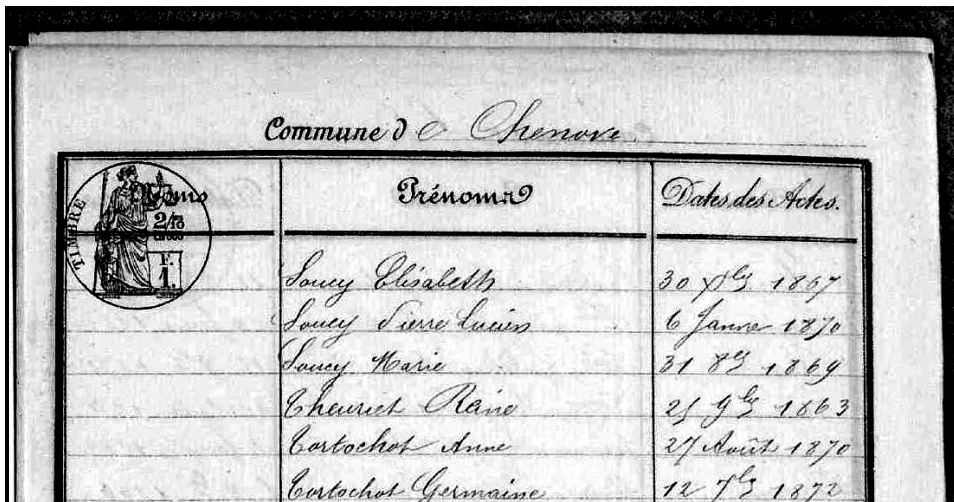 Commune de Chenove
TIMBRE
Noms
Prénoms
Dates des Actes.
2/10
EN SUS
F.
1.
Soucy Elisabeth 30 Xbre 1867
Soucy Pierre Lucien 6 Janver 1870
Soucy Marie 31 8bre 1869
Theuriet Reine 25 9bre 1863
Tortochot Anne 27 Août 1870
Tortochot Germaine 12 7bre 1872